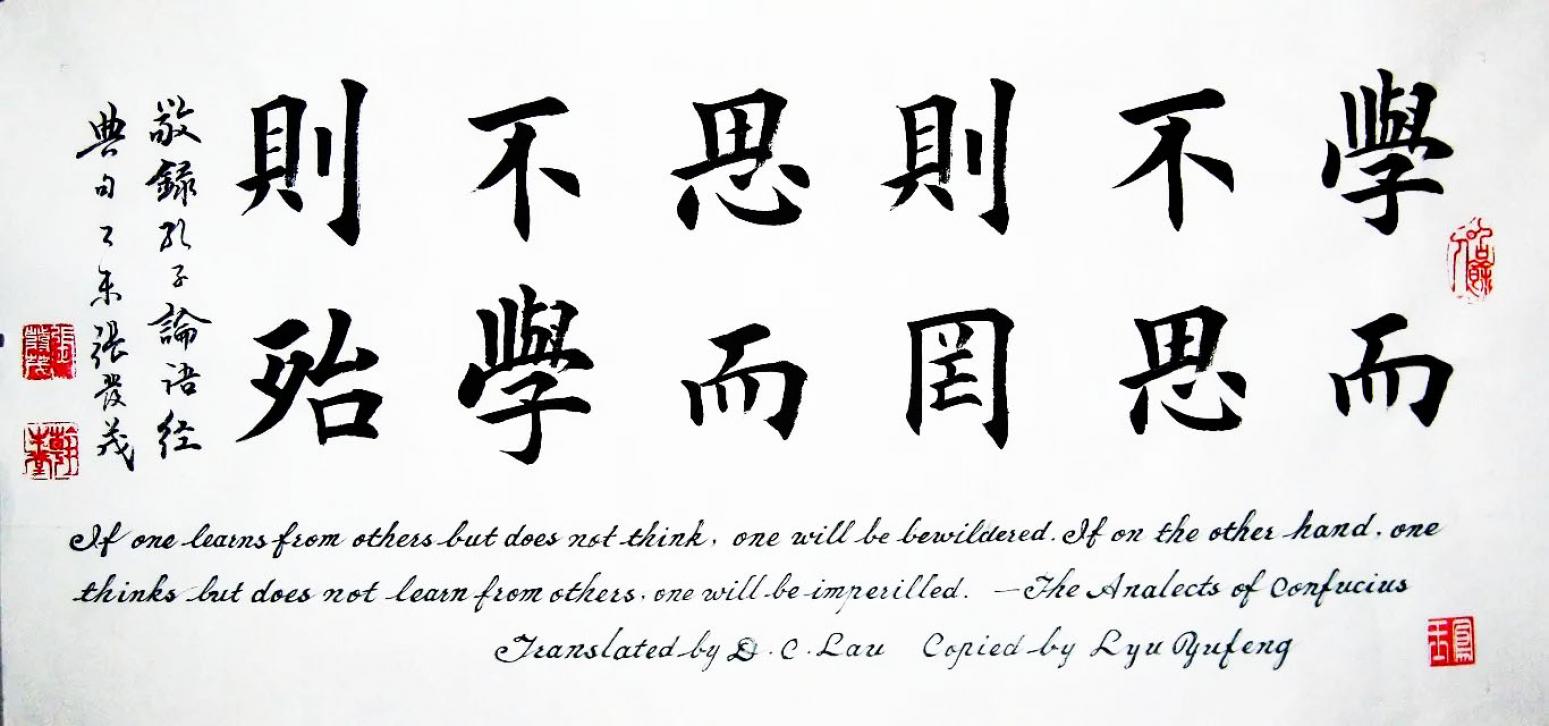 學而
不思
則罔
思而
不學
則殆
敬録孔子論語经
典句乙未張發茂
If one learns from others but does not think, one will be bewildered. If on the other hand, one
thinks but does not learn from others, one will be imperilled. —The Analects of Confucius
Translated by D.C.Lau Copied by Lyu Yufeng